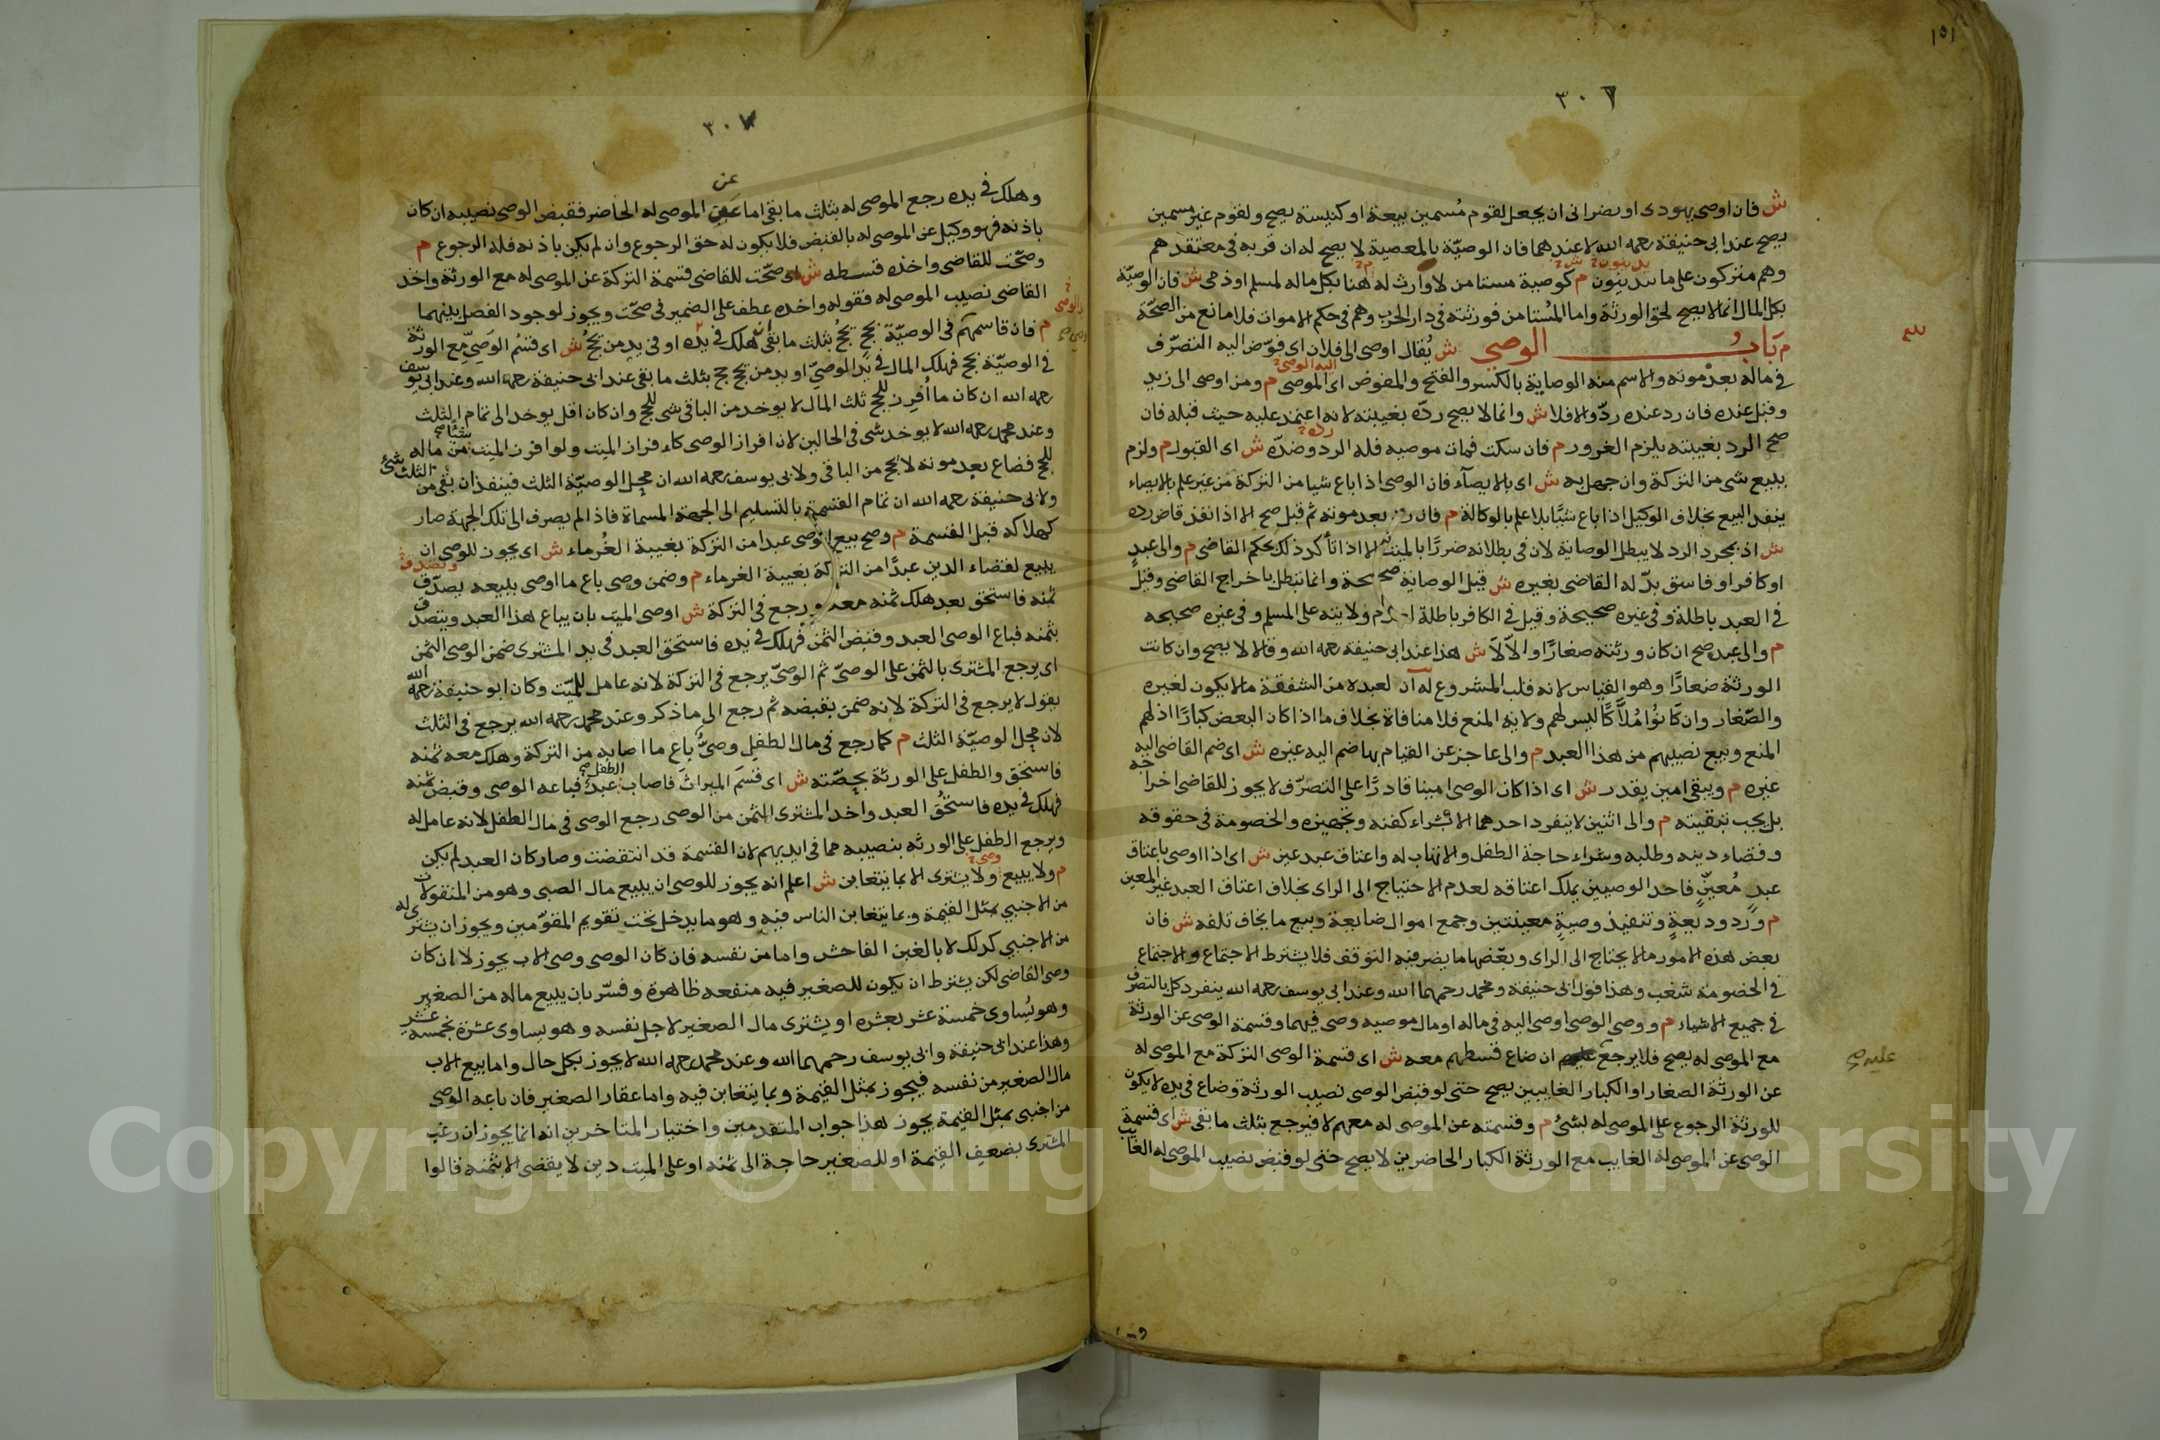 ١٥١
٣٠٦
ش فان اوصى يهودى او نصرانى ان يجعل لقوم مُسمين بيعة او كنيسة يصح ولقوم غير مسمين
يصح عند ابى حنيفة رحمه الله لا عندهما فان الوصيّة بالمعصية لا يصح له ان قربه فى معتقدهم
وهم متركون على ما يدينون م كوصية مستامن لا وارث له هنا بكل ماله لمسلم او ذمى ش فان الوصيّة
بكل المال انما لا يصح لحق الورثة واما المُستامن فورثته فى دار الحرب وهم فى حكم الاموات فلا مانع من الصحّة
م بَابُ الوصى ش يُقال اوصى الى فلان اى فوّض اليه التصرّف
فى ماله بعد موته والاسم منه الوصاية بالكسر والفتح والمفوض اى الموصى م ومن اوصى الى زيد
وقبل عنده فان رد عنده ردّ والا فلا ش وانما لا يصح ردّه بغيبته لانه اعتمد عليه حيث قبله فان
صح الرد بغيبته يلزم الغرور م فان سكت فمات موصيه فله الرد وضدّه ش اى القبول م ولزم
ببيع شى من التركة وان جهل به ش اى بالايصآء فان الوصى اذا باع شيا من التركة من غير علم بالايصاء
ينفذ البيع بخلاف الوكيل اذا باع شيًا بلا علم بالوكالة م فان رد بعد موته ثم قبل صح الا اذا نفذ قاض رده
ش اذ بمجرد الرد لا يبطل الوصاية لان فى بطلانه ضررًا بالميت الا اذا تأكد ذلك بحكم القاضى م والى عبدٍ
او كافر او فاسق بدّله القاضى بغيره ش قيل الوصاية صحيحة وانما تبطل باخراج القاضى وقيل
فى العبد باطلة وفى غيره صحيحة وقيل فى الكافر باطلة لعدم ولايته على المسلم وفى غيره صحيحه
م والى عبده صح ان كان ورثته صغارًا والاّ لاَ ش هذا عند ابى حنيفة رحمه الله وقالا لا يصح وان كانت
الورثة صغارًا وهو القياس لانه قلب المشروع له ان لعبده من الشفقة ما لا يكون لغيره
والصّغار وان كانوا مُلاَّكًا ليس لهم ولاية المنع فلا منافاة بخلاف ما اذا كان البعض كبارًا اذ لهم
المنع وبيع نصيبهم من هذا العبد م والى عاجز عن القيام بها ضم اليه غيره ش اى ضم القاضى اليه
غيره م ويبقى امين يقدر ش اى اذا كان الوصى امينا قادرًا على التصرّف لا يجوز للقاضى اخراجه
بل يجب تبقيته م والى اثنين لا ينفرد احدهما الا بشراء كفنه وتجهيزه والخصومة فى حقوقه
وقضاء دينه وطلبه وشراء حاجة الطفل والاتهاب له واعتاق عبد عين ش اى اذا اوصى باعتاق
عبدٍ مُعيّنٍ فاحد الوصيين يملك اعتاقه لعدم الاحتياج الى الراى بخلاف اعتاق العبد غير المعين
م وردّ وديعةٍ وتنفيذ وصيةٍ معينتين وجمع اموال ضايعة وبيع ما يخاف تلفه ش فان
بعض هذه الامور مما لا يحتاج الى الراى وبعضها ما يضر فيه التوقف فلا يشترط الاجتماع والاجتماع
فى الخصومة شغب وهذا قول ابى حنيفة ومحمد رحمهما الله وعند ابى يوسف رحمه الله ينفرد كل بالتصرف
فى جميع الاشياء م ووصى الوصى اوصى اليه فى ماله او مال موصيه وصى فيهما وقسمة الوصى عن الورثة
مع الموصى له يصح فلا يرجع ان ضاع قسطهم معه ش اى قسمة الوصى التركة مع الموصى له
عليه صح
عن الورثة الصغار او الكبار الغايبين يصح حتى لو قبض الوصى نصيب الورثة وضاع فى يده لا يكون
للورثة الرجوع على الموصى له بشئ م وقسمته عن الموصى له معهم لا فيرجع بثلث ما بقى ش اى قسمة
الوصى عن الموصى له الغايب مع الورثة الكبار الحاضرين لا يصح حتى لو قبض نصيب الموصى له الغايب
٣٠٧
وهلك فى يده رجع الموصى له بثلث ما بقى اما عن الموصى له الحاضر فقبض الوصى نصيبه ان كان
باذنه فهو وكيل عن الموصى له بالقبض فلا يكون له حق الرجوع وان لم يكن باذنه فله الرجوع م
وصحّت للقاضى واخذه قسطه ش اى صحّت للقاضى قسمة التركة عن الموصى له مع الورثة واخذ
القاضى نصيب الموصى له فقوله واخذه عطف على الضمير فى صحّت ويجوز لوجود الفصل بينهما
م فان قاسمهم فى الوصيّة بحج حج بثلث ما بقى ان هلك فى يده او فى يد من يحج ش اى قسم الوصى مع الورثة
فى الوصيّة بحج فهلك المال فى يد الموصىّ او يد من يحج حج بثلث ما بقى عند ابى حنيفة رحمه الله وعند ابى يوسف
رحمه الله ان كان ما اُفرز للحج ثلث المال لا يوخذ من الباقى شى للحج وان كان اقل يوخذ الى تمام الثلث
وعند محمد رحمه الله لا يوخذ شى فى الحالين لان افراز الوصى كافراز الميت ولو افرز الميت شيًا من ماله
للحج فضاع بعد موته لا يحج من الباقى ولابى يوسف رحمه الله ان محل الوصيّة الثلث فينفذ ان بقى من الثلث شئ
ولابى حنيفة رحمه الله ان تمام القسمة بالتسليم الى الجهة المسماة فاذا لم يصرف الى تلك الجهة صار
كهلاكه قبل القسمة م وصح بيع الوصى عبدا من التركة بغيبة الغُرماء ش اى يجوز للوصى ان
يبيع لقضاء الدين عبدًا من التركة بغيبة الغرماء م وضمن وصى باع ما اوصى ببيعه وتصدق
ثمنه فاستحق بعد هلك ثمنه معه ورجع فى التركة ش اوصى الميت بان يباع هذا العبد ويتصدق
بثمنه فباع الوصى العبد وقبض الثمن فهلك فى يده فاستحق العبد فى يد المشترى ضمن الوصى الثمن
اى يرجع المشترى بالثمن على الوصىّ ثم الوصىّ يرجع فى التركة لانه عامل للميّت وكان ابو حنيفة رحمه الله
يقول لا يرجع فى التركة لانه ضمن بقبضه ثم رجع الى ما ذكر وعند محمد رحمه الله يرجع فى الثلث
لان محل الوصيّة الثلث م كما رجع فى مال الطفل وصىٌّ باع ما اصابه من التركة وهلك معه ثمنه
فاستحق والطفل على الورثة بحصّته ش اى قسم الميراث فاصاب الطفل عبدٌ فباعه الوصى وقبض ثمنه
فهلك فى يده فاستحق العبد واخذ المشترى الثمن من الوصى رجع الوصى فى مال الطفل لانه عامل له
ويرجع الطفل على الورثه بنصيبه مما فى ايديهم لان القسمة قد انتقضت وصار كان العبد لم يكن
م ولا يبيع وصى ولا يشترى الا بما يتغابن ش اعلم انه يجوز للوصى ان يبيع مال الصبى وهو من المنقولات
من الاجنبى بمثل القيمة وبما يتغابن الناس فيه وهو ما يدخل تحت تقويم المقوّمين ويجوز ان يشترى له
من الاجنبى كذلك لا بالغبن الفاحش واما من نفسه فان كان الوصى وصى الاب يجوز لا ان كان
وصى القاضى لكن يشترط ان يكون للصغير فيه منفعة ظاهرة وفسّر بان يبيع ماله من الصغير
وهو يُساوى خمسة عشر بعشره او يشترى مال الصغير لاجل نفسه وهو يساوى عشرة بخمسة عشر
وهذا عند ابى حنيفة وابى يوسف رحمهما الله وعند محمد رحمه الله لا يجوز بكل حال واما بيع الاب
مال الصغير من نفسه فيجوز بمثل القيمة وبما يتغابن فيه واما عقار الصغير فان باعه الوصى
من اجنبى بمثل القيمة يجوز هذا جواب المتقدمين واختيار المتاخرين انه انما يجوز ان رغب
المشترى بضعف القيمة او للصغير حاجة الى ثمنه او على الميت دين لا يقضى الا بثمنه قالوا
Copyright © King Saud University